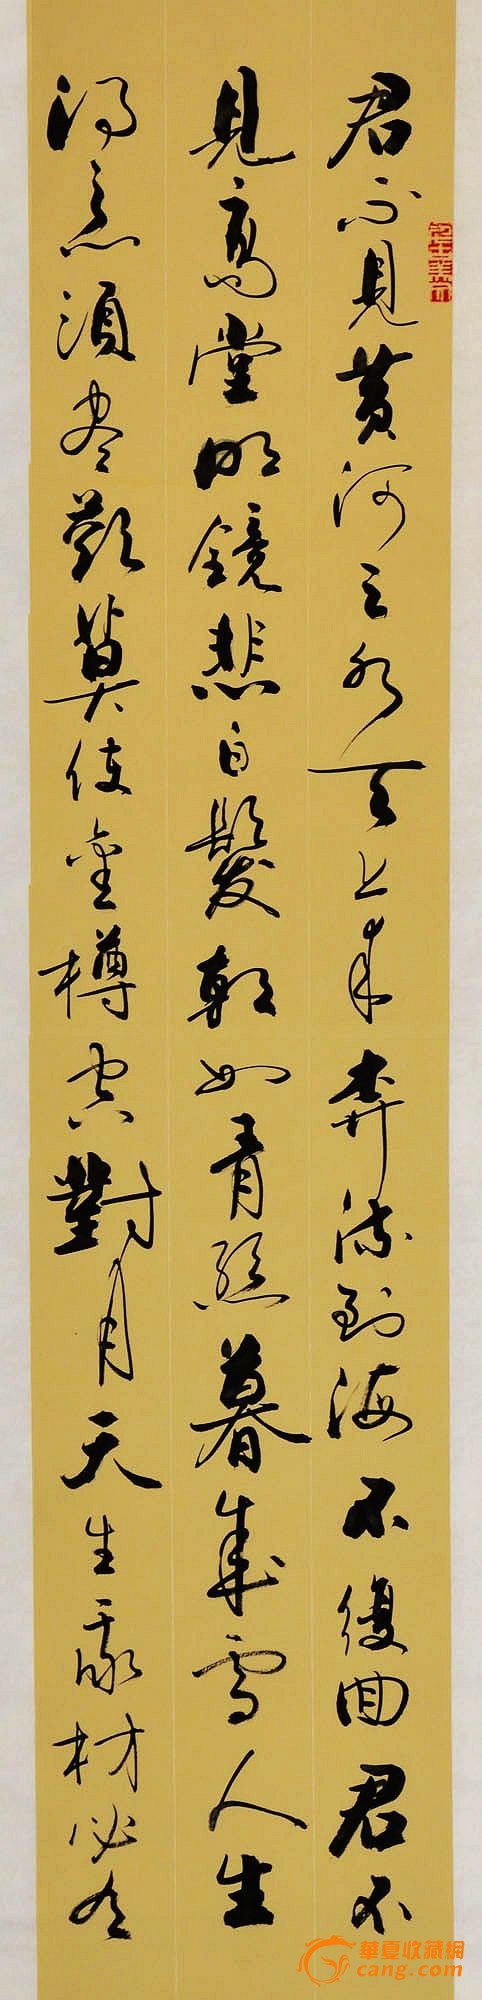 君不見黄河之水天上來奔流到海不復回君不
見高堂明鏡悲白髮朝如青絲暮成雪人生
得意須盡歡莫使金樽空對月天生我材必有
華夏收藏網
cang.com